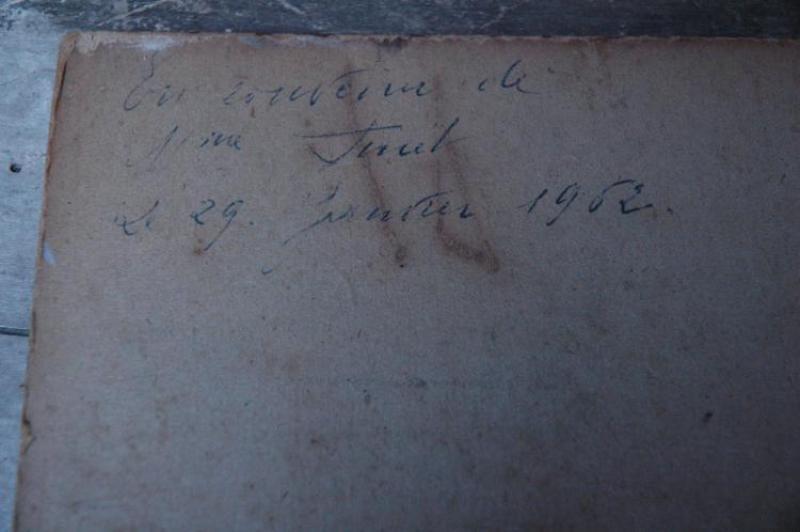 En souvenir de
Mme
Le 29. Janvier 1962.